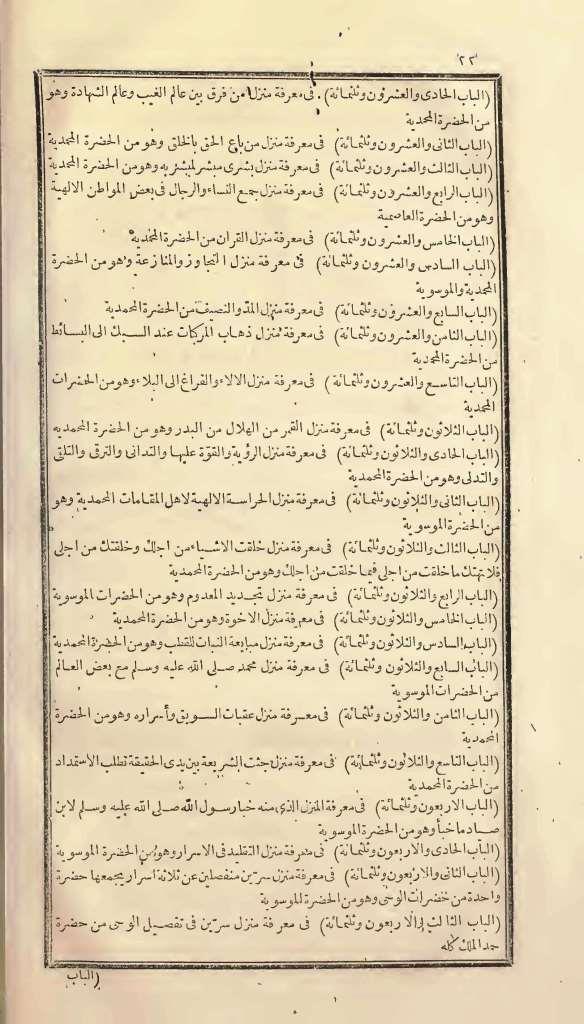 ٢٢
(الباب الحادى والعشرون وثلثمائة) . فى معرفة منزل من فرق بين عالم الغيب وعالم الشهادة وهو
من الحضرة المحمدية
(الباب الثانى والعشرون وثلثمائة) فى معرفة منزل من باع الحق بالخلق وهو من الحضرة المحمدية
(الباب الثالث والعشرون وثلثمائة) فى معرفة منزل بشرى مبشر لمبشر به وهو من الحضرة المحمدية
(الباب الرابع والعشرون وثلثمائة) فى معرفة منزل جمع النساء والرجال فى بعض المواطن الالهية
وهو من الحضرة العاصمية
(الباب الخامس والعشرون وثلثمائة) فى معرفة منزل القران من الحضرة المحمدية
(الباب السادس والعشرون وثلثمائة) فى معرفة منزل التحاور والمنازعة وهو من الحضرة
المحمدية والموسوية
(الباب السابع والعشرون وثلثمائة) فى معرفة منزل المد والنصيف من الحضرة المحمدية
(الباب الثامن والعشرون وثلثمائة) فى معرفة منزل ذهاب المركبات عند السبك الى البسائط
من الحضرة المحمدية
(الباب التاسع والعشرون وثلثمائة) فى معرفة منزل الالاء والفراغ الى البلاء وهو من الحضرات
المحمدية
(الباب الثلاثون وثلثمائة) فى معرفة منزل القمر من الهلال من البدر وهو من الحضرة المحمديه
(الباب الحادى والثلاثون وثلثمائة) فى معرفة منزل الرؤية والقوة عليها والتدانى والترقى والتلقى
والتدلى وهو من الحضرة المحمدية
(الباب الثانى والثلاثون وثلثمائة) فى معرفة منزل الحراسة الالهية لاهل المقامات المحمدية وهو
من الحضرة الموسوية
(الباب الثالث والثلاثون وثلثمائة) فى معرفة منزل خلقت الاشياء من اجلك وخلقتك من اجلى
فلا تهتك ما خلقت من اجلى فيما خلقت من اجلك وهو من الحضرة المحمدية
(الباب الرابع والثلاثون وثلثمائة) فى معرفة منزل تجديد المعدوم وهو من الحضرات الموسوية
(الباب الخامس والثلاثون وثلثمائة) فى معرفة منزل الاخوة وهو من الحضرة المحمدية
(الباب السادس والثلاثون وثلثمائة) فى معرفة منزل مبايعة النبات للقطب وهو من الحضرة المحمدية
(الباب السابع والثلاثون وثلثمائة) فى معرفة منزل محمد صلى الله عليه وسلم مع بعض العالم
من الحضرات الموسوية
(الباب الثامن والثلاثون وثلثمائة) فى معرفة منزل عقبات السويق وأسراره وهو من الحضرة
المحمدية
(الباب التاسع والثلاثون وثلثمائة) فى معرفة منزل جثت الشريعة بين يدى الحقيقة تطلب الاستمداد
من الحضرة المحمدية
(الباب الاربعون وثلثمائة) فى معرفة المنزل الذى منه خبا رسول الله صلى الله عليه وسلم لابن
صياد ما خبأ وهو من الحضرة الموسوية
(الباب الحادى والاربعون وثلثمائة) فى معرفة منزل التقليد فى الاسرار وهو من الحضرة الموسوية
(الباب الثانى والاربعون وثلثمائة) فى معرفة منزل سرين منفصلين عن ثلاثة أسرار يجمعها حضرة
واحدة من حضرات الوحى وهو من الحضرة الموسوية
(الباب الثالث والاربعون وثلثمائة) فى معرفة منزل سرين فى تفصيل الوحى من حضرة
حمد الملك كله
(الباب